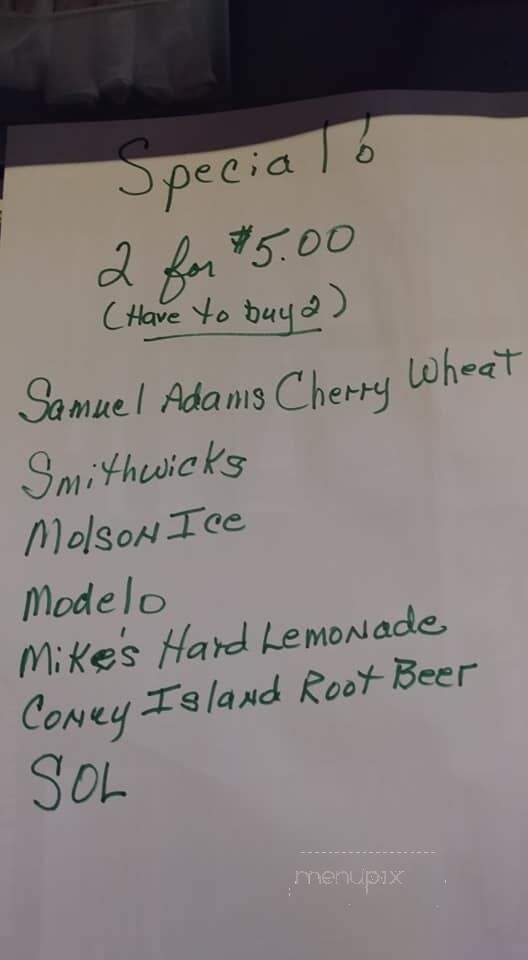 Special!
2 for $5.00
(Have to buy 2)
Samuel Adams Cherry Wheat
Smithwicks
Molson Ice
Modelo
Mike's Hard Lemonade
Coney Island Root Beer
SOL
menupix